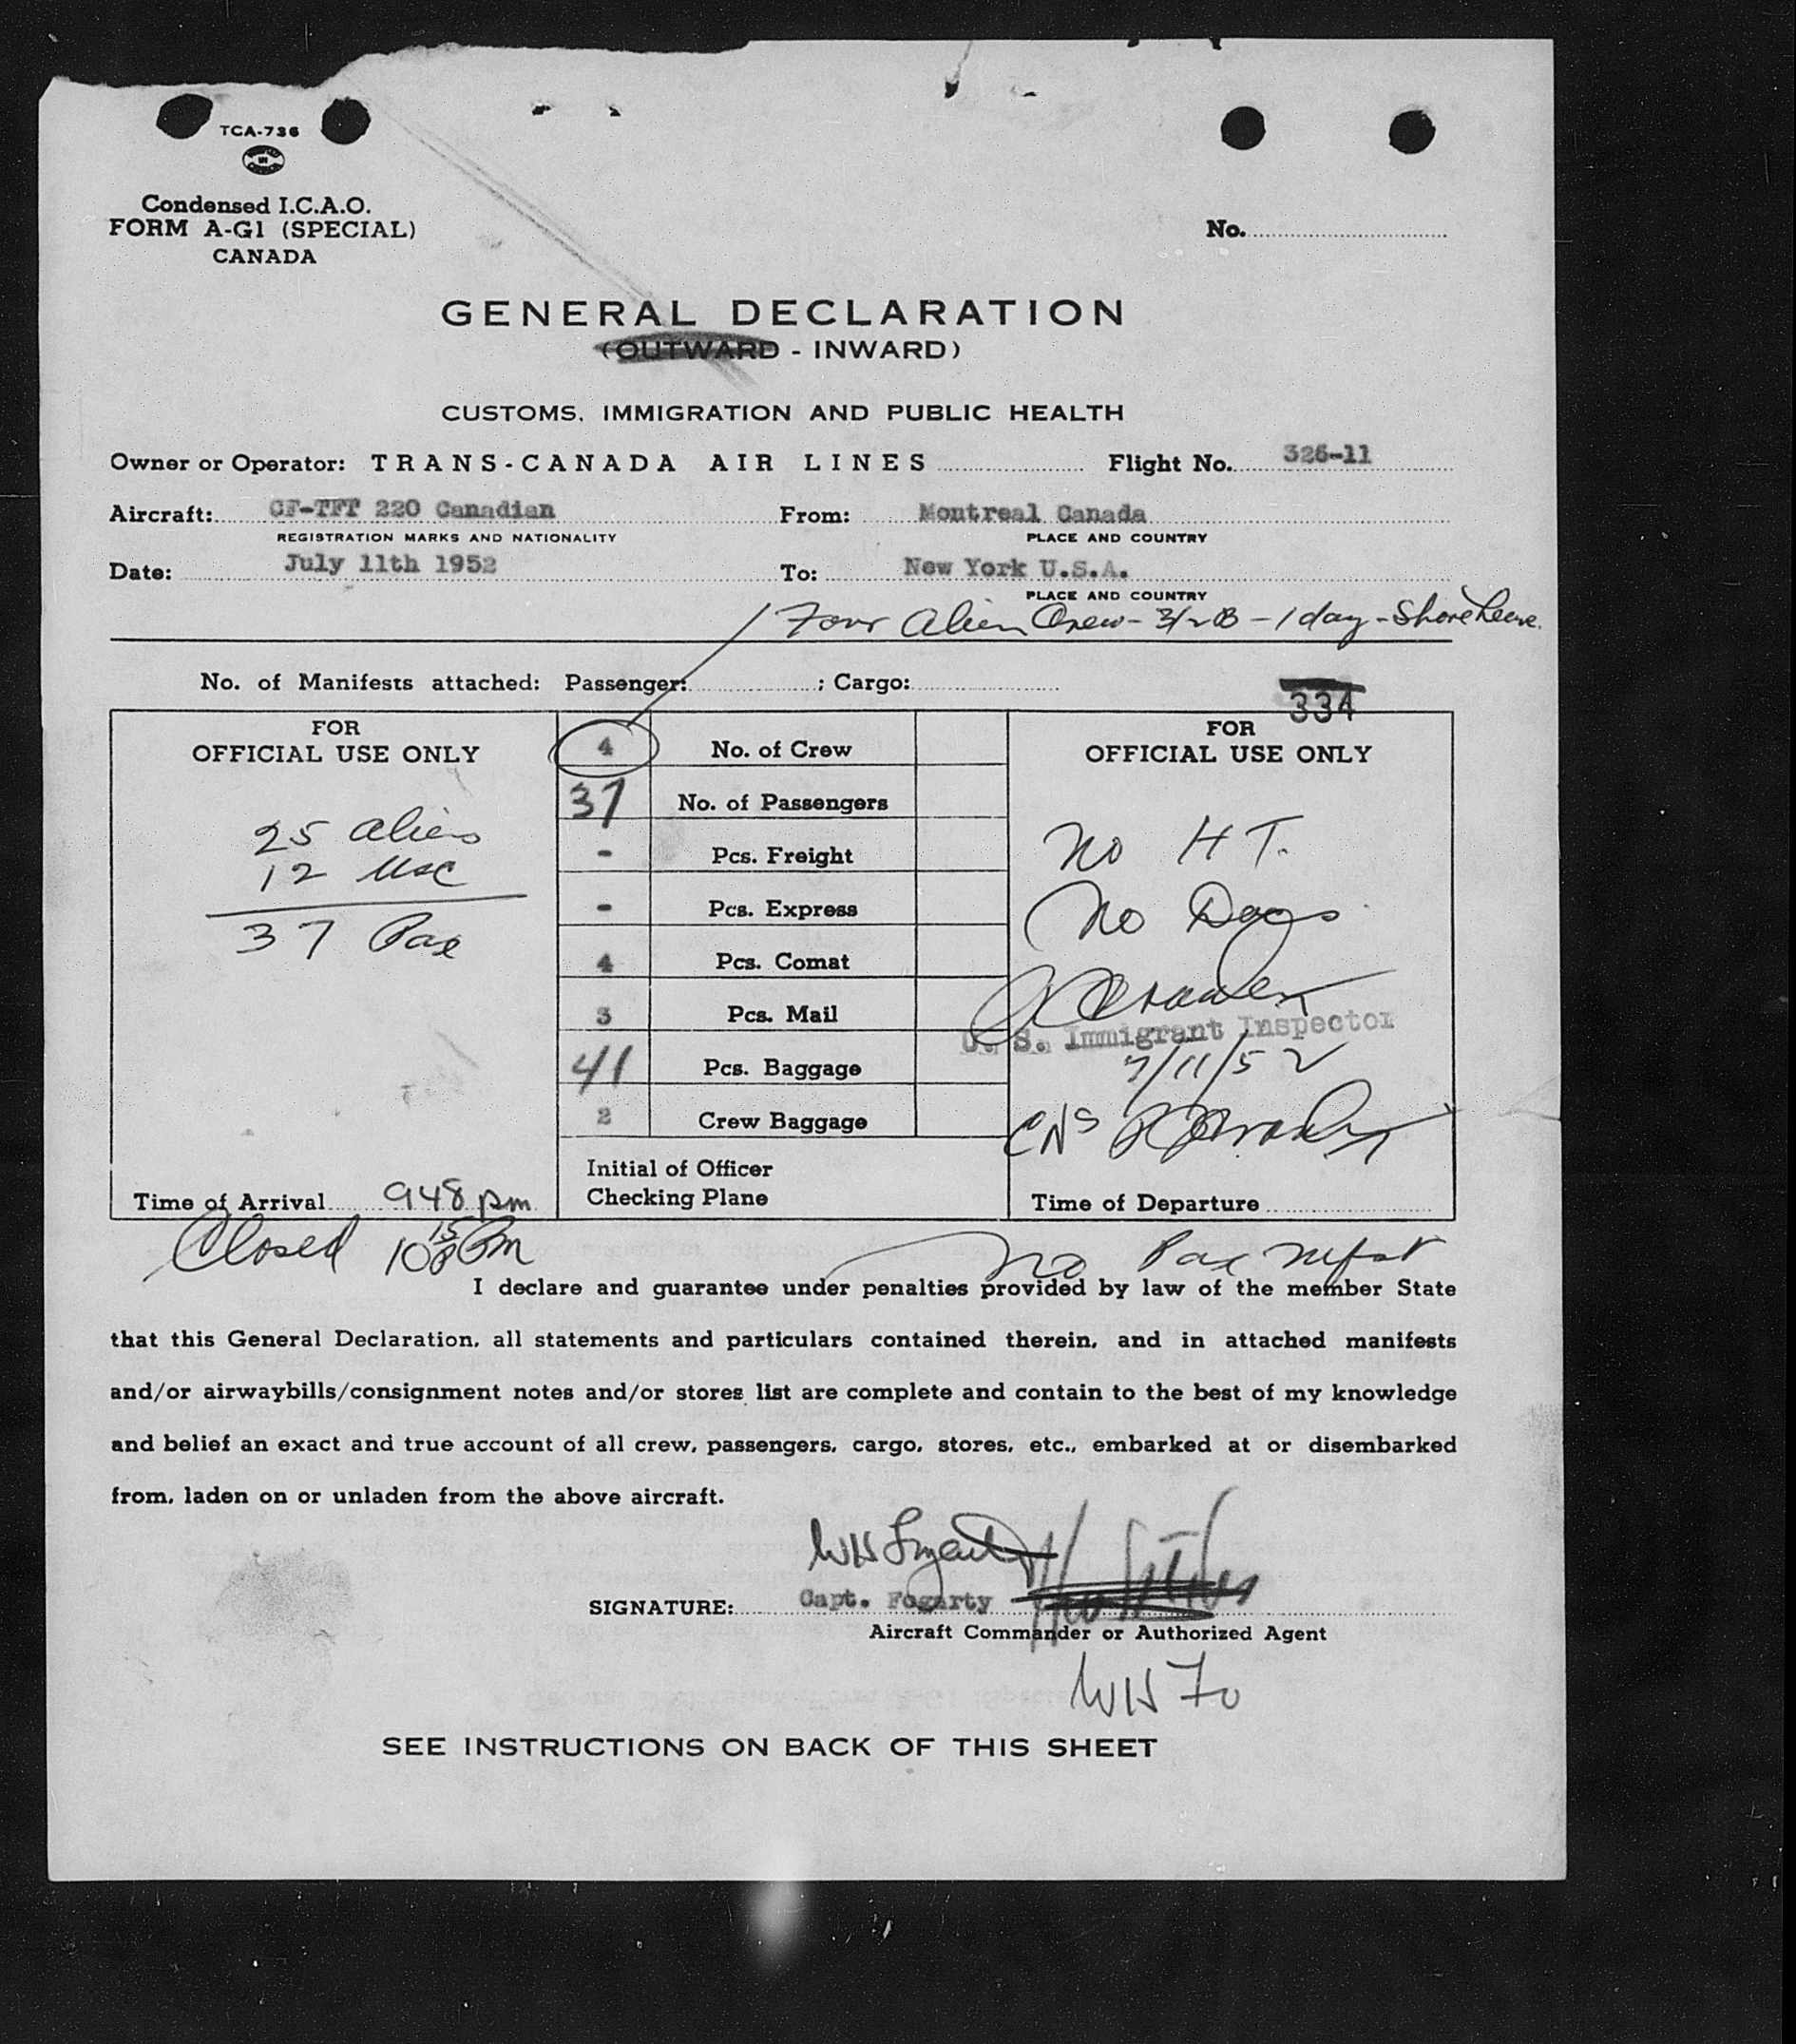 TCA-736
Condensed I.C.A.O.
FORM A-G1 (SPECIAL)
CANADA
No.
GENERAL DECLARATION
(OUTWARD - INWARD)
CUSTOMS, IMMIGRATION AND PUBLIC HEALTH
Owner or Operator: TRANS-CANADA AIR LINES Flight No. 326-11
Aircraft: CF-TFT 220 Canadian From: Montreal Canada
REGISTRATION MARKS AND NATIONALITY PLACE AND COUNTRY
Date: July 11th 1952 To: New York U.S.A.
PLACE AND COUNTRY
Four Alien Crew - - 1 day - Shore Leave.
No. of Manifests attached: Passenger: ; Cargo:
334
FOR
OFFICIAL USE ONLY
25 aliens
12 USC
37 Pax
Time of Arrival 948 pm
4 No. of Crew
37 No. of Passengers
- Pcs. Freight
- Pcs. Express
4 Pcs. Comat
3 Pcs. Mail
41 Pcs. Baggage
2 Crew Baggage
Initial of Officer
Checking Plane
FOR
OFFICIAL USE ONLY
No HT.
No Dogs
U. S. Immigrant Inspector
7/11/52
Time of Departure
Closed 10 15 Pm
No Pax Mfst
I declare and guarantee under penalties provided by law of the member State
that this General Declaration, all statements and particulars contained therein, and in attached manifests
and/or airwaybills/consignment notes and/or stores list are complete and contain to the best of my knowledge
and belief an exact and true account of all crew, passengers, cargo, stores, etc., embarked at or disembarked
from, laden on or unladen from the above aircraft.
WH Fogarty
SIGNATURE: Capt. Fogarty
Aircraft Commander or Authorized Agent
WH Fo
SEE INSTRUCTIONS ON BACK OF THIS SHEET